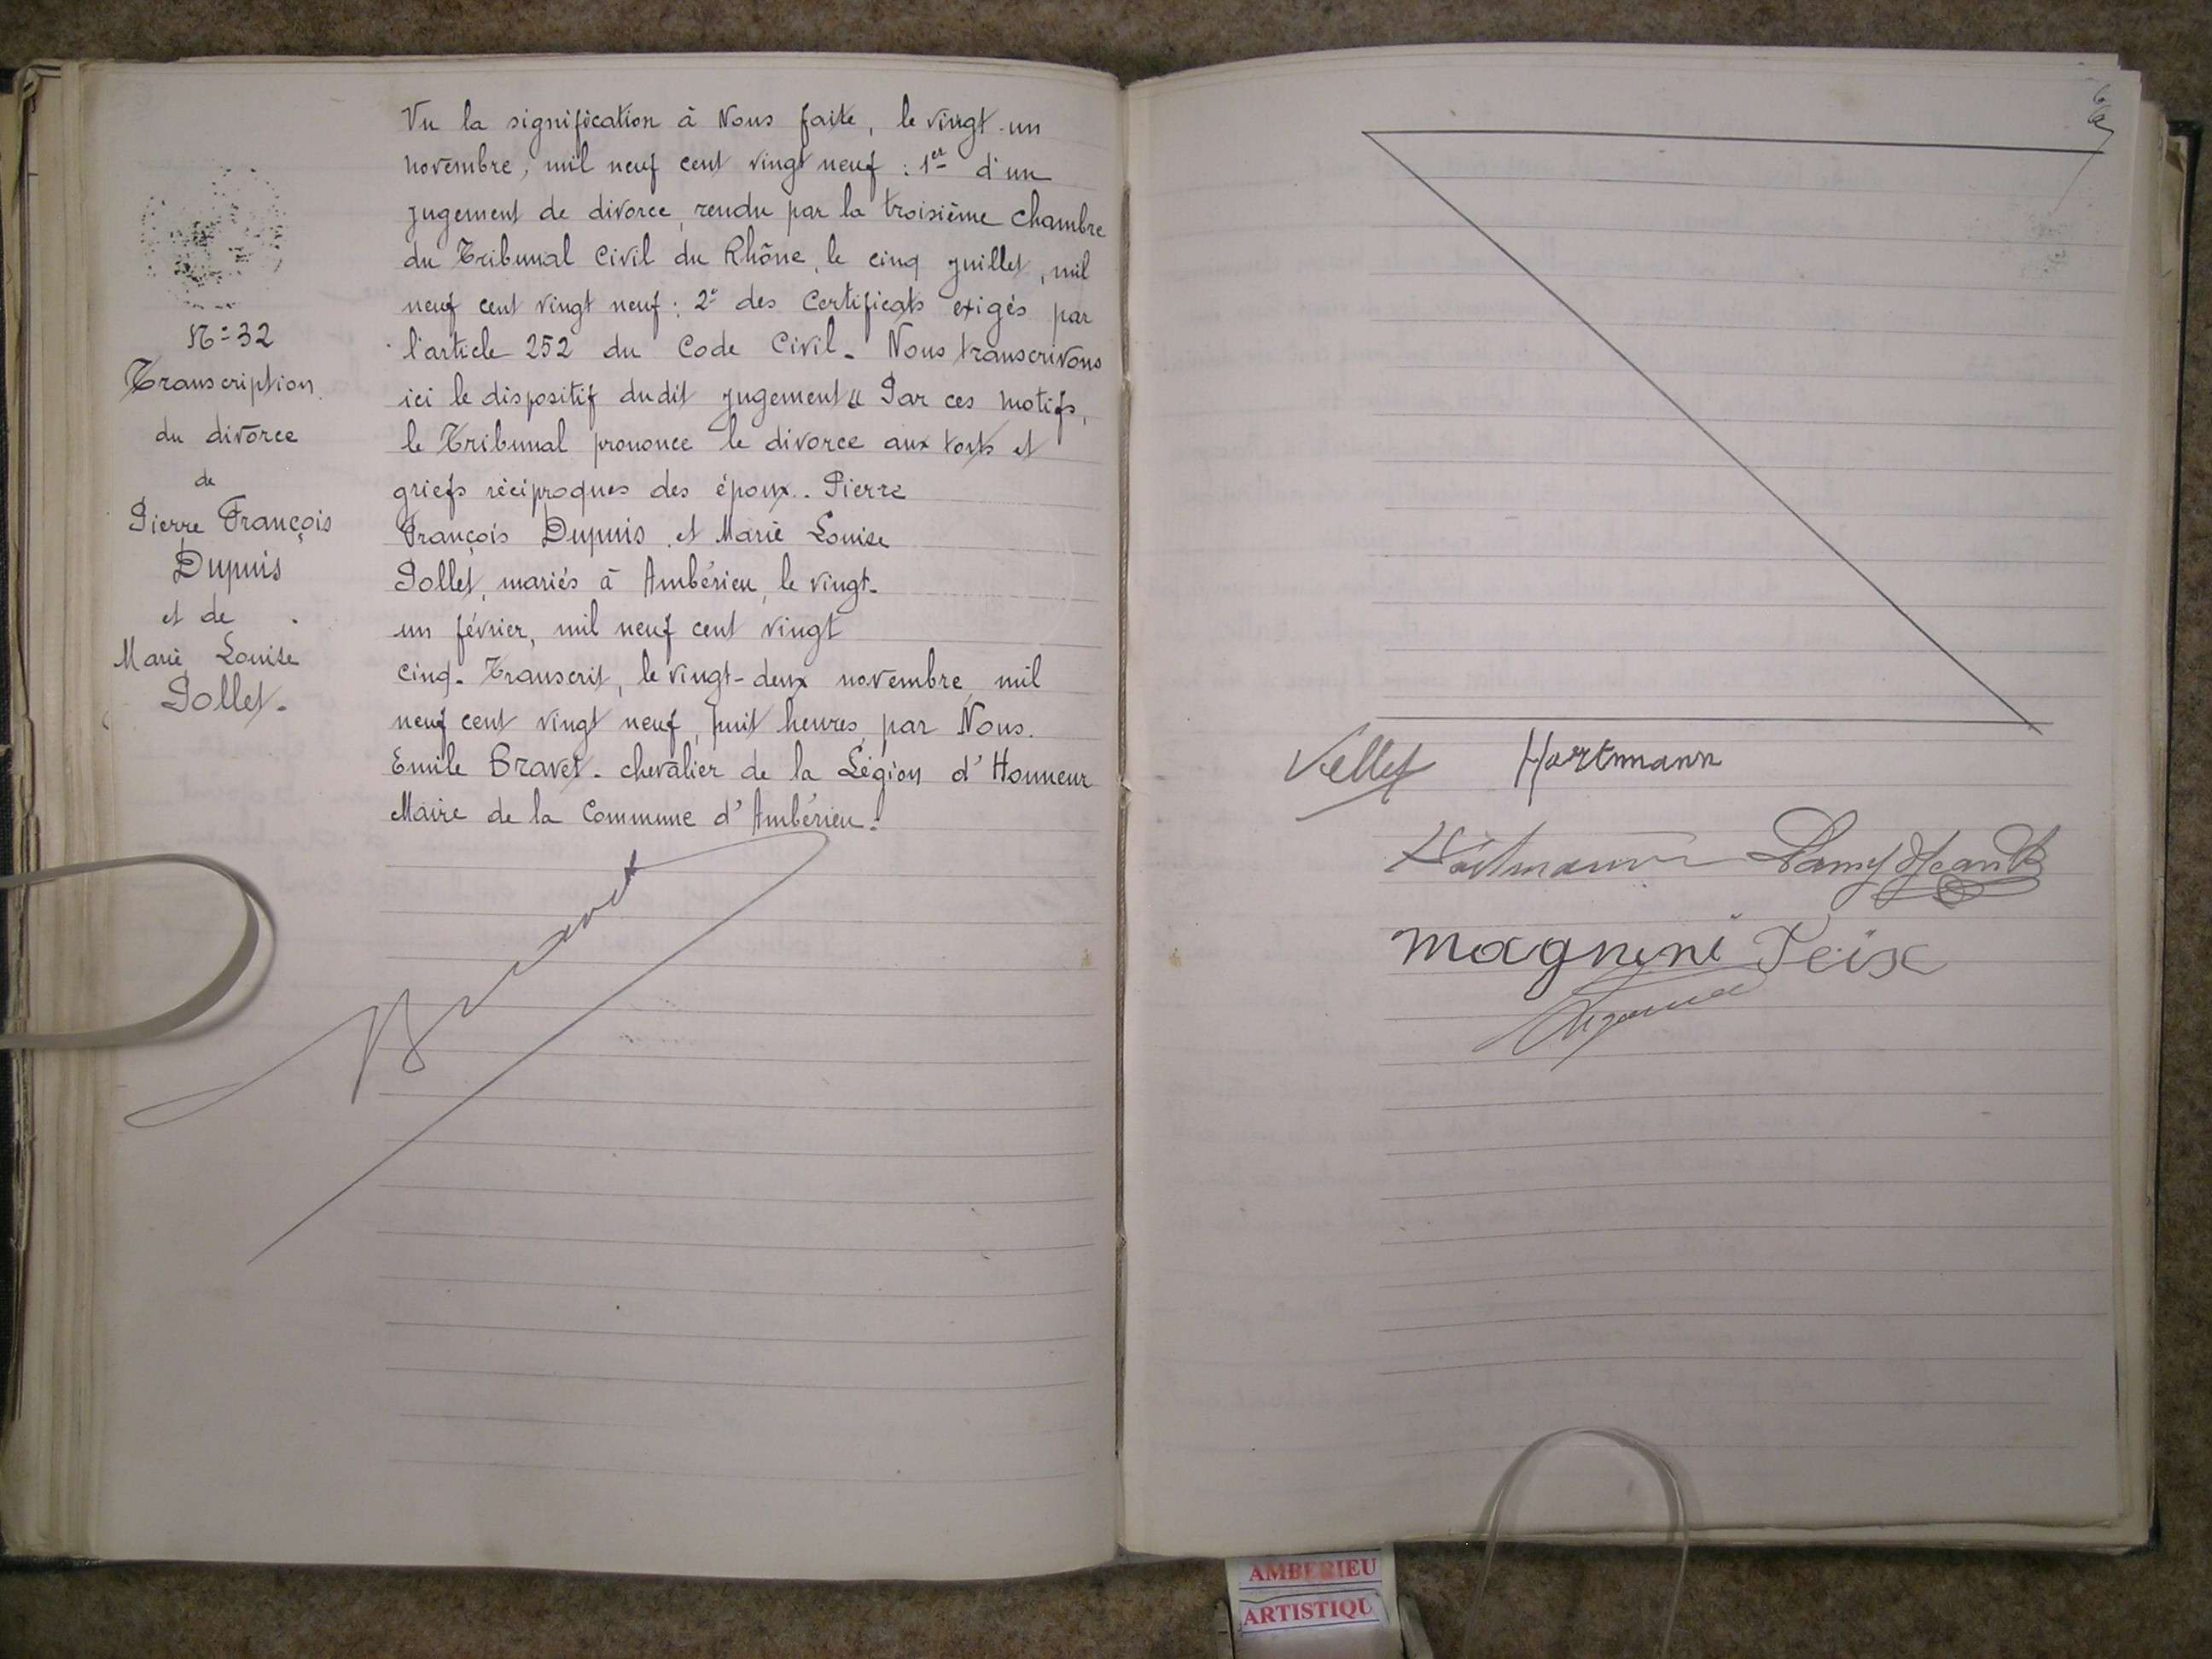 N° 32
Transcription
du divorce
de
Pierre François
Dupuis
et de
Marie Louise
Pollet.
Vu la signification à Nous faite, le vingt-un
novembre, mil neuf cent vingt neuf : 1er d'un
jugement de divorce, rendu par la troisième chambre
du Tribunal Civil du Rhône, le cinq juillet, mil
neuf cent vingt neuf ; 2° des certificats exigés par
l'article 252 du Code Civil. Nous transcrivons
ici le dispositif dudit jugement « Par ces motifs,
le Tribunal prononce le divorce aux torts et
griefs réciproques des époux. Pierre
François Dupuis et Marie Louise
Pollet, mariés à Ambérieu, le vingt-
un février, mil neuf cent vingt
cinq. Transcrit, le vingt-deux novembre, mil
neuf cent vingt neuf, huit heures, par Nous.
Emile Bravet. chevalier de la Légion d'Honneur
Maire de la Commune d'Ambérieu.
Bravet
Hartmann
Hartmann
magnini
AMBERIEU
ARTISTIQU